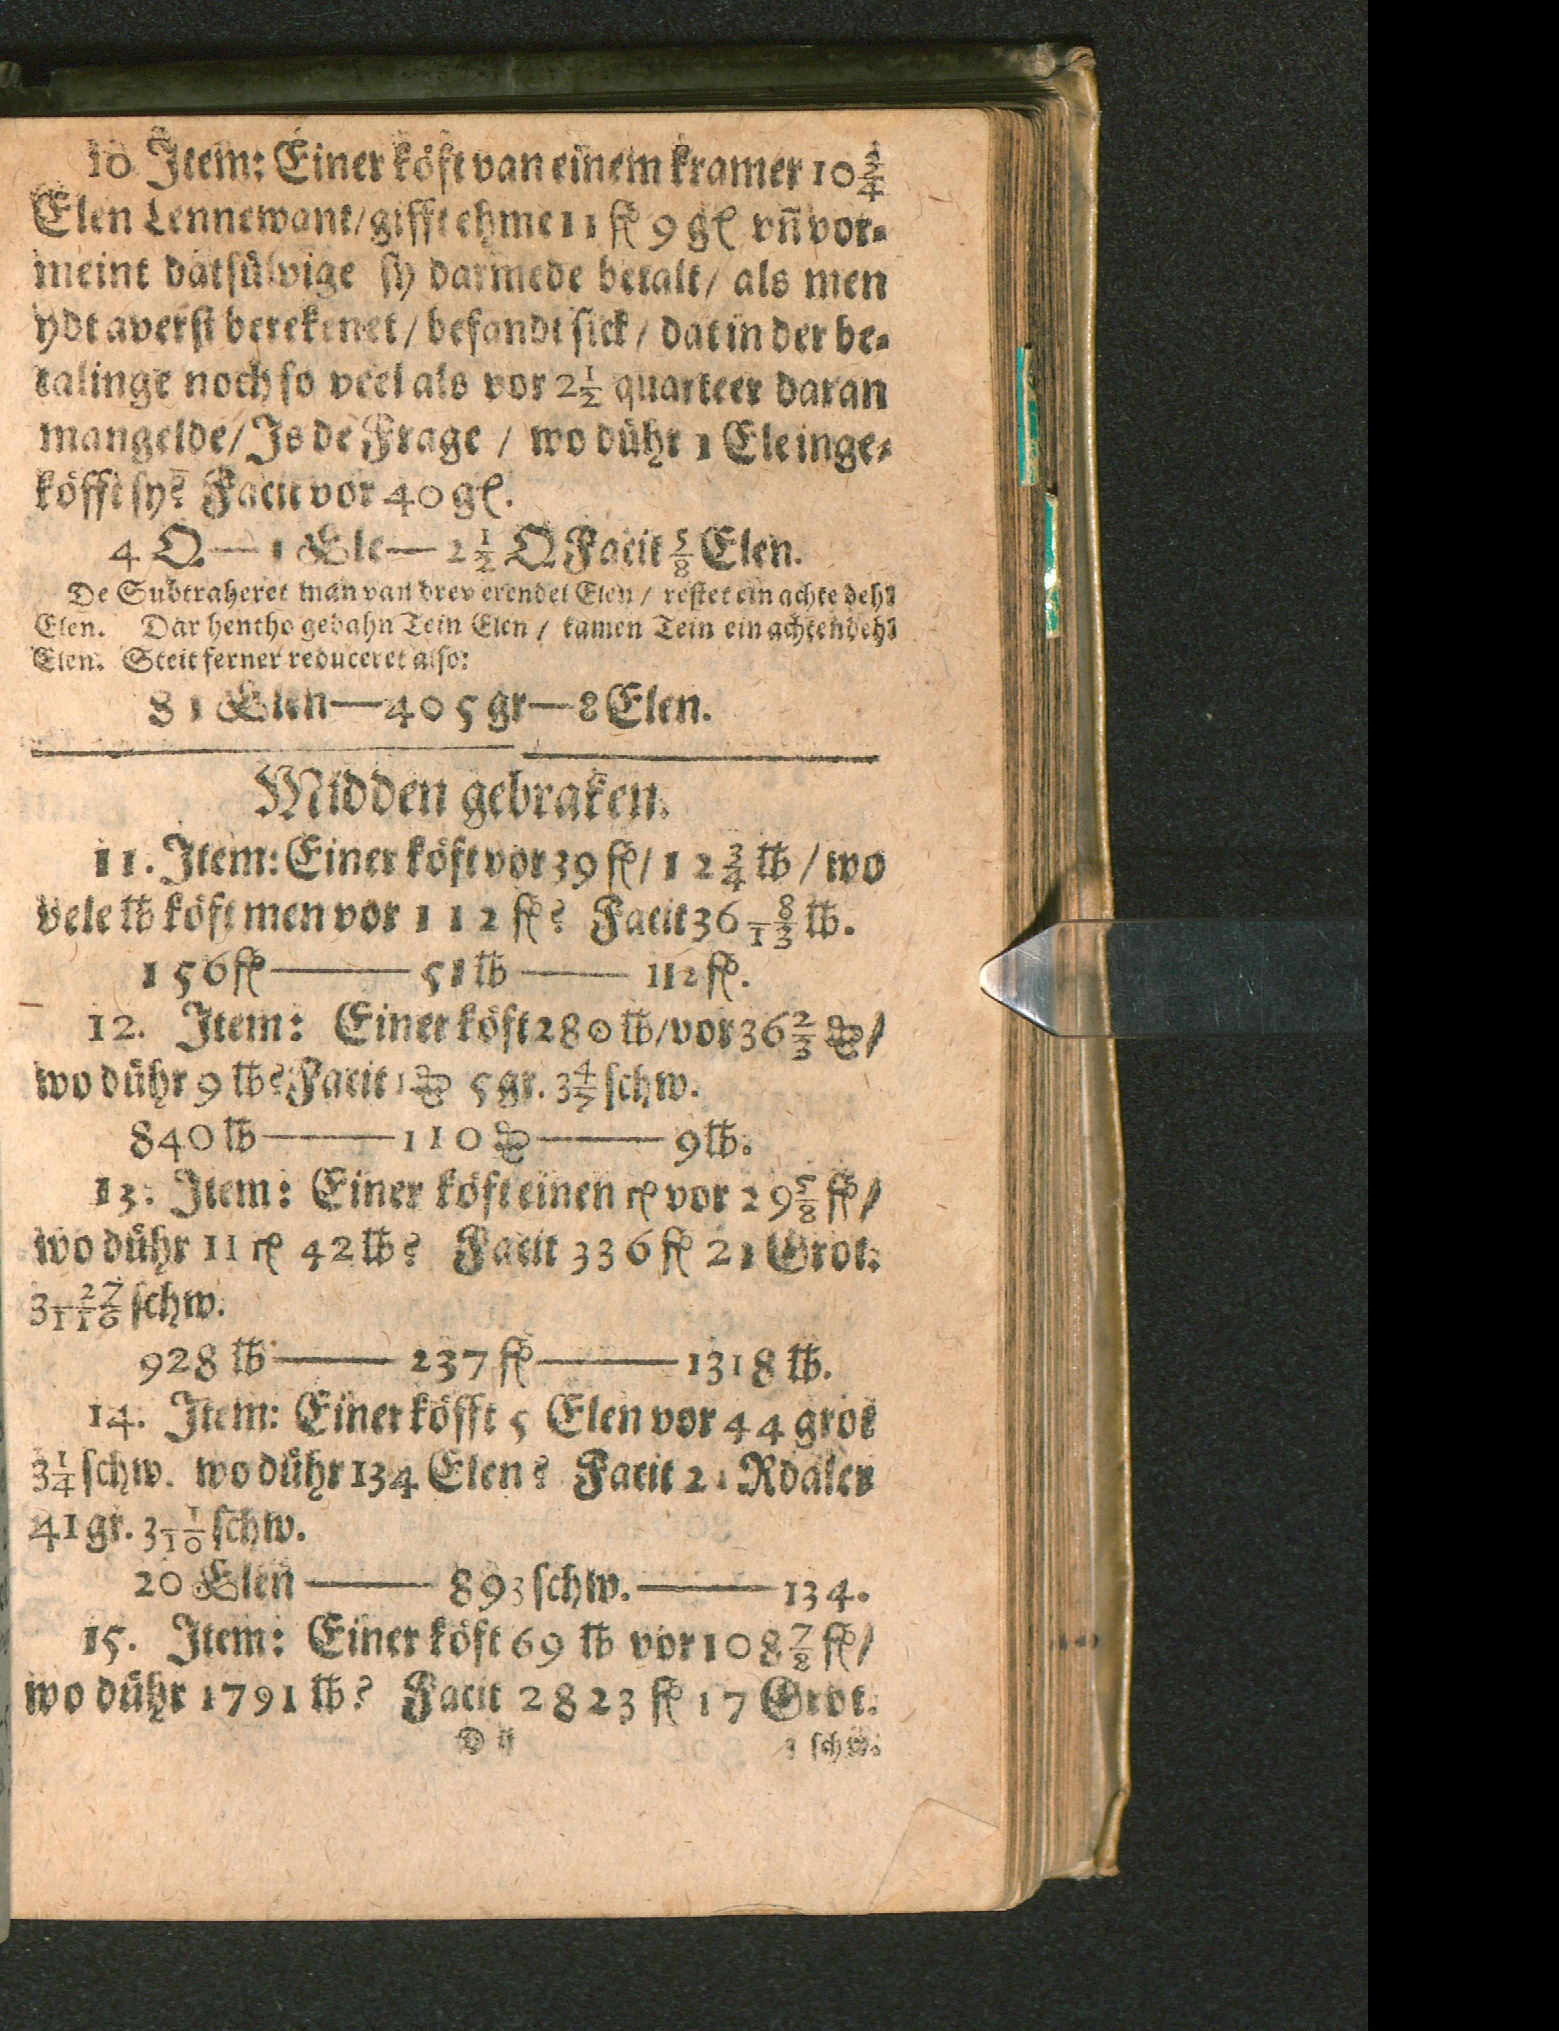 10. Item: Einer köft van einem kramer 10 3/4
Elen Lennewant/gifft ehme 11 ℔ 9 gl vñ vor-
meint dätsülvige sy darmede betalt/ als men
ydt averst berekenet/ befandt sick/ dat in der be-
talinge noch so veel als vor 2 1/2 quarteer daran
mangelde/Is de Frage / wo dühr 1 Ele inge-
köfft sy? Facit vor 40 gl.
4 Q.— 1 Ele— 2 1/2 Q. Facit 5/8 Elen.
De Subtraheret man van drey verendel Elen/ restet ein achte dehl
Elen. Dar hentho gedahn Tein Elen/ kamen Tein ein achtendehl
Elen. Steit ferner reduceret also:
81 Elen—405 gr—8 Elen.
Midden gebraken.
11. Item: Einer köft vor 39 ſℓ/ 12 3/4 ℔ / wo
vele ℔ köft men vor 112 ſℓ? Facit 36 8/13 ℔.
156 ſℓ—— 51 ℔ —— 112 ſℓ.
12. Item: Einer köft 280 ℔/vor 36 2/3 ₰/
wo dühr 9 ℔? Facit 1 ₰ 5 gr. 3 4/7 schw.
840 ℔——110 ₰——9 ℔.
13. Item: Einer köft einen rl vor 29 5/8 ſℓ/
wo dühr 11 rl 42 ℔? Facit 336 ſℓ 21 Grot.
3 27/116 schw.
928 ℔—— 237 ſℓ——1318 ℔.
14. Item: Einer köfft 5 Elen vor 44 grot
3 1/4 schw. wo dühr 134 Elen? Facit 21 Rdaler
41 gr. 3 1/10 schw.
20 Elen —— 893 schw.——134.
15. Item: Einer köft 69 ℔ vor 108 7/8 ſℓ/
wo dühr 1791 ℔? Facit 2823 ſℓ 17 Grot.
D ij 1 schw.